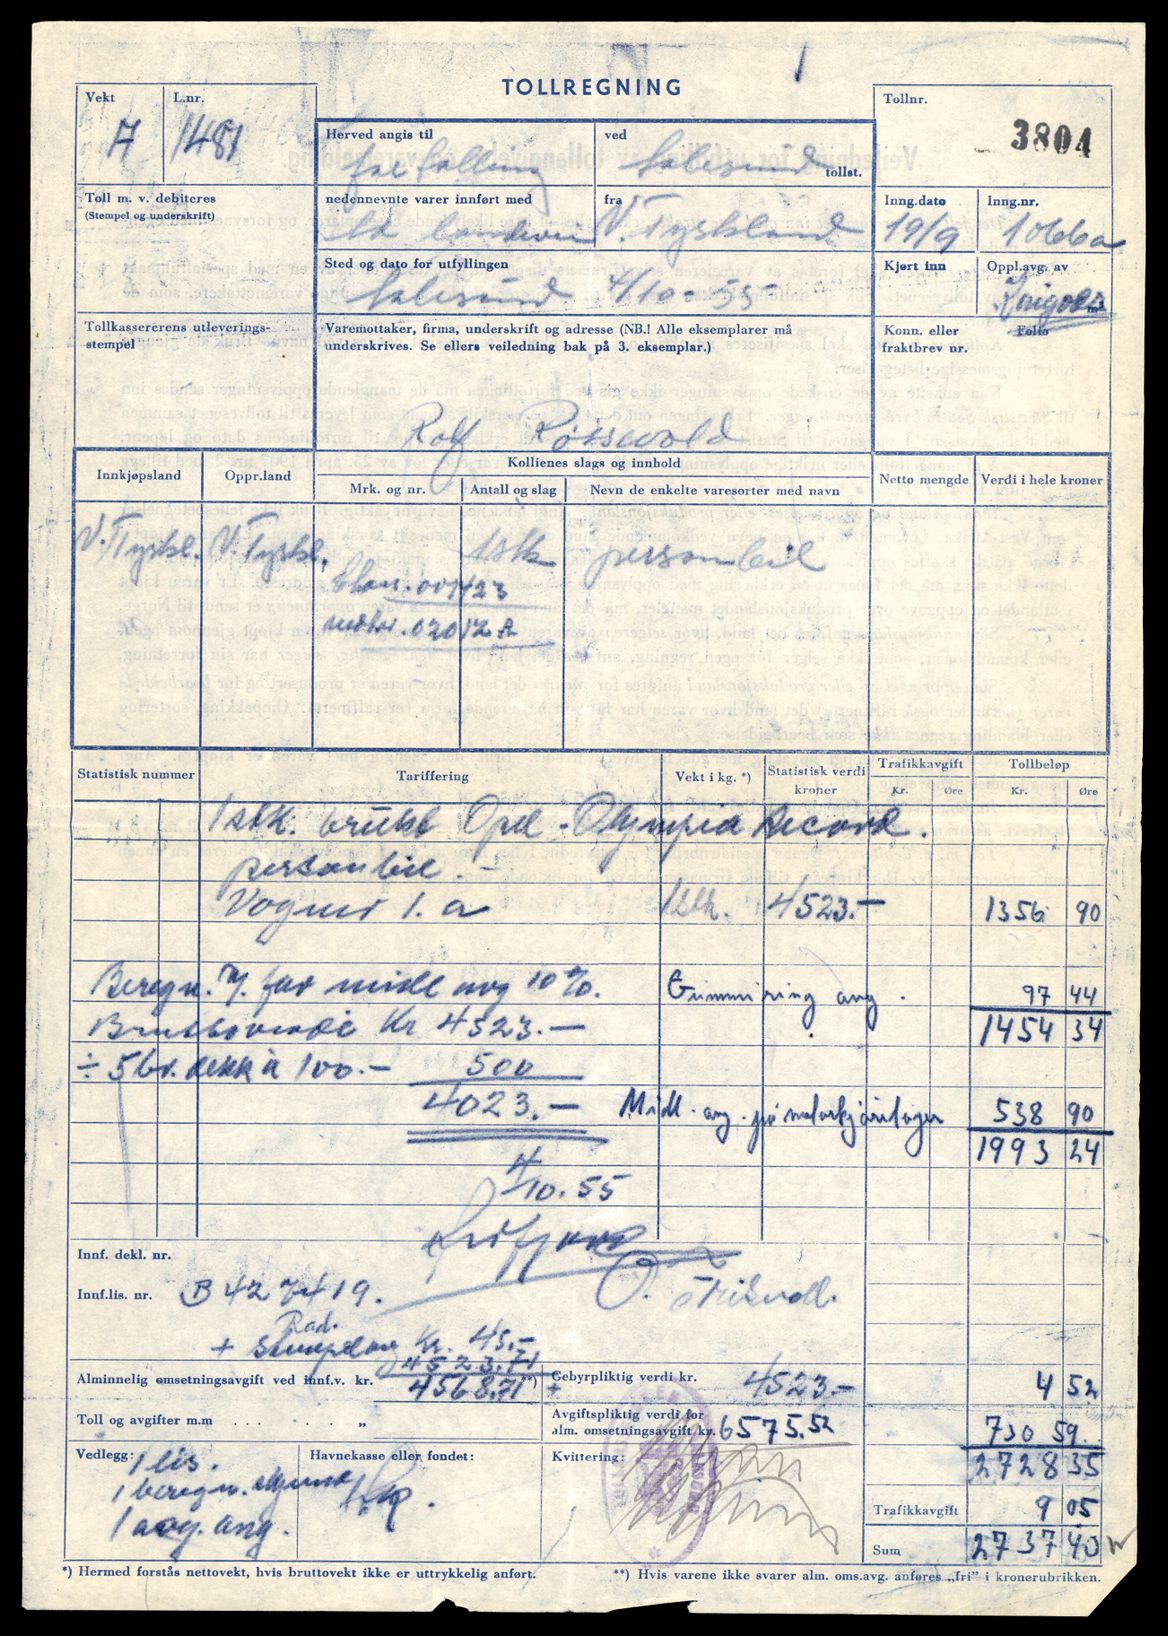 TOLLREGNING
Vekt
L.nr.
A
1481
Tollnr.
3804
Herved angis til
ved
tollst.
Toll m. v. debiteres
(Stempel og underskrift)
nedennevnte varer innført med
fra
V. Tyskland
Inng.dato
Inng.nr.
19/9
Sted og dato for utfyllingen
4/10-55
Kjørt inn
Oppl.avg. av
m³
Tollkassererens utleverings-
stempel
Varemottaker, firma, underskrift og adresse (NB.! Alle eksemplarer må
underskrives. Se ellers veiledning bak på 3. eksemplar.)
Konn. eller
fraktbrev nr.
Folio
Rolf Røsvold
Innkjøpsland
Oppr.land
Kollienes slags og innhold
Mrk. og nr.
Antall og slag
Nevn de enkelte varesorter med navn
Netto mengde
Verdi i hele kroner
V. Tyskl. V. Tyskl. 1stk personbil
02012
Statistisk nummer
Tariffering
Vekt i kg. *)
Statistisk verdi
kroner
Trafikkavgift
Kr.
Øre
Tollbeløp
Kr.
Øre
1stk. brukt Opel - Olympia Record.
personbil.-
Vogner 1. a 1stk. 4523.- 1356 90
Beregn. av. for midl avg 10%. Gummiring avg. 97 44
Bruttoverdi Kr 4523.- 1454 34
÷ 5 br. dekk à 100.- 500
4023.- Midl. avg. på motorkjøretøyer 538 90
1993 24
4/10.55
Innf. dekl. nr.
Innf.lis. nr.
B 427419.
Rad.
+ Kr. 45.-
4523.71
Alminnelig omsetningsavgift ved innf.v. kr. 4568.71 **)
Gebyrpliktig verdi kr. 4523.- 4 52
Toll og avgifter m.m . . . . . . „
Avgiftspliktig verdi for
alm. omsetningsavgift kr. 6575.52 730 59
Vedlegg:
1 lis.
Havnekasse eller fondet:
Kvittering:
2728 35
Trafikkavgift 9 05
Sum 2737 40
*) Hermed forstås nettovekt, hvis bruttovekt ikke er uttrykkelig anført.
**) Hvis varene ikke svarer alm. oms.avg. anføres „fri” i kronerubrikken.